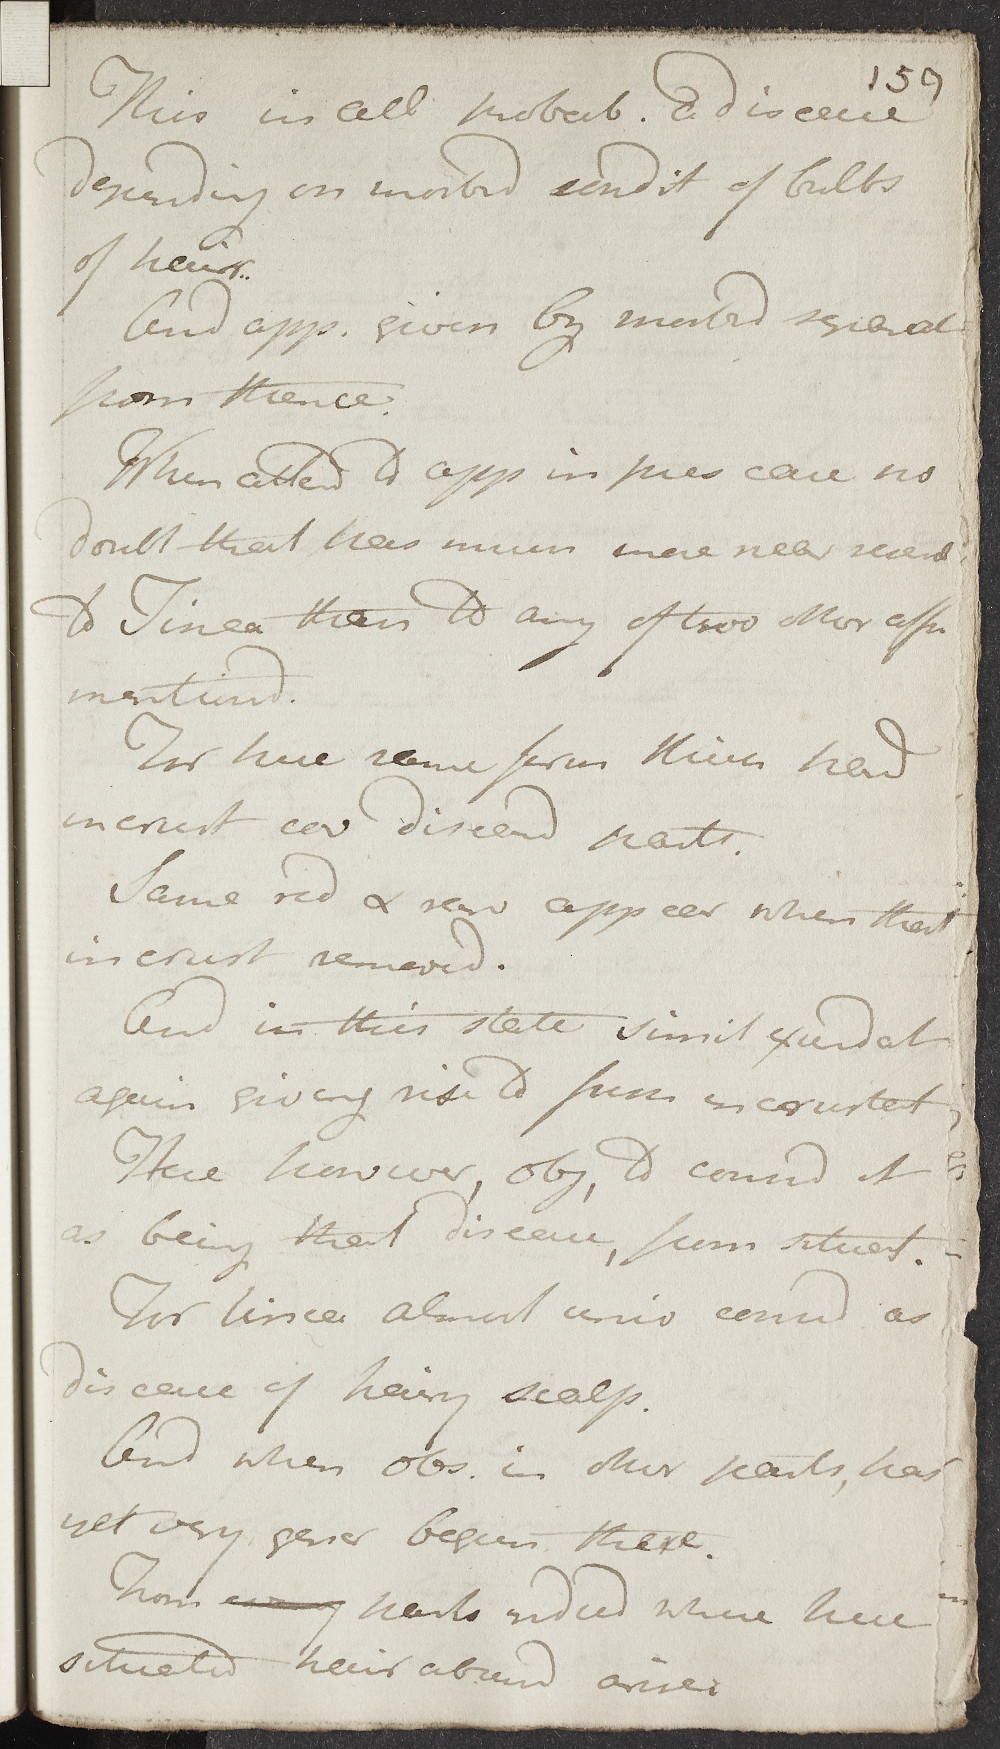 159
This in all probab. a disease
depending on morbid condit of bulbs
of hair.
And app. given by morbid
from thence.
When attend to app in pres case no
doubt that has much more near resemb
to Tinea than to any of two other affn
mentiond.
For here same firm thick head
incrust cov diseasd parts.
Same red & raw appear when that
incrust removed.
And in this state simil exudat
again giving rise to fresh incrustat
Here however, obj, to consid it
as being that disease, from situat.
For tinea almost univ consid as
disease of hairy scalp.
And when obs. in other parts, has
yet very gener begun there.
From parts indeed where here
situated hair abund arise